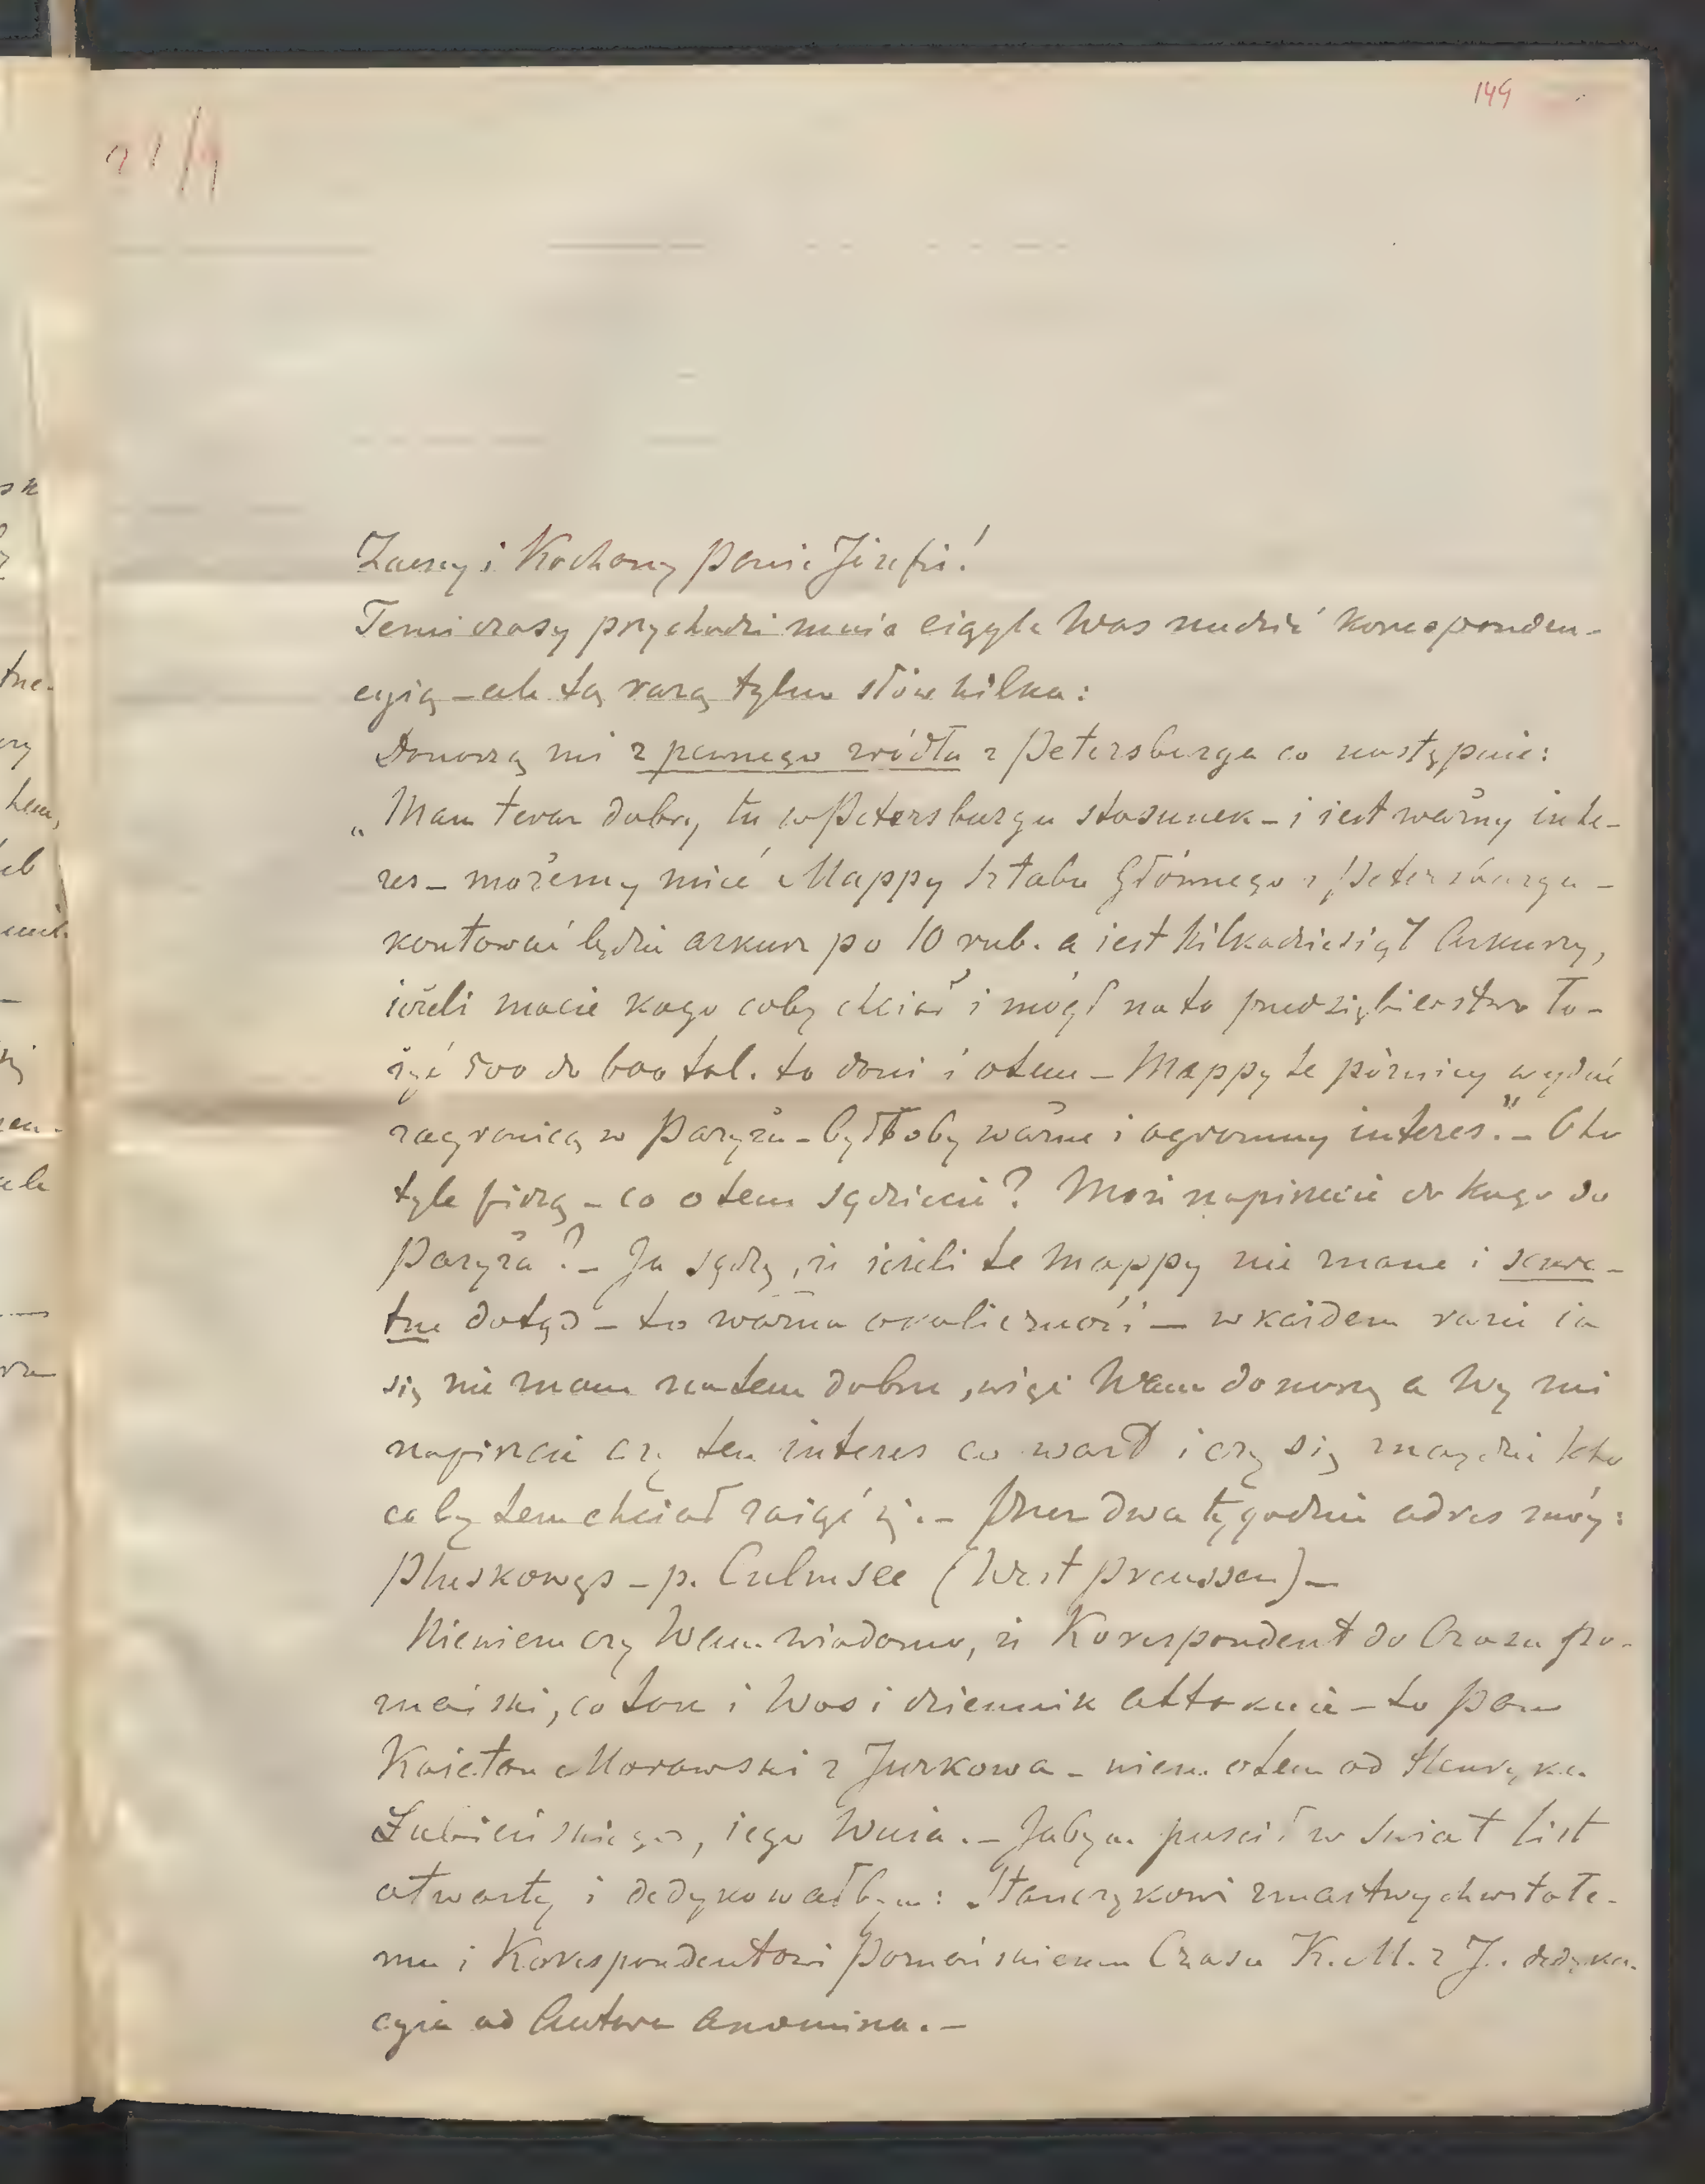 149
21/9
Zacny i Kochany Panie Józefie!
Temi czasy przychodzi mnie ciągle Was nudzić koresponden-
cyią – ale tą razą tylko słów kilka:
Donoszą mi z pewnego źródła z Petersburga co następuie:
„Mam teraz dobry tu w Petersburgu stosunek – i iest ważny inte-
res – możemy mieć Mappy Sztabu Głównego z Petersburga –
kosztować będzie arkusz po 10 rub. a iest kilkadziesiąt Arkuszy,
ieżeli macie kogo coby chciał i mógł na to przedsiębierstwo ło-
żyć 500 do 600 tal. to donieś o tem – Mappy te późniey wydać
zagranicą w Paryżu – byłtoby ważny i ogromny interes." – Oto
tyle piszą – co o tem sądzicie? Może napiszecie do kogo do
Paryża? – Ja sądzę, iż ieżeli te Mappy nie znane i sekre-
tne dotąd – to ważna okoliczność – w każdem razie ia
się nie znam na tem dobrze, więc Wam donoszę a Wy mi
napiszcie czy ten interes co wart i czy się znaydzie kto
coby tem chciał zaiąć się. – Przez dwa tygodnie adres móy:
Pluskowęs – p. Culmsee (West Preussen) –
Niewiem czy Wam wiadomo, iż Korespondent do Czasu po-
znański, co tak i Was i dziennik attakuie – to Pan
Kaietan Morawski z Jurkowa – wiem o tem od Henryka
Łubieńskiego, iego Wuia. – Jabym puścił w świat list
otwarty i dedykowałbym: Stańczykowi zmartwychwstałe-
mu i Korespondentowi Poznańskiemu Czasu K. M. z J. dedyka-
cyia od Autora Anonima. –